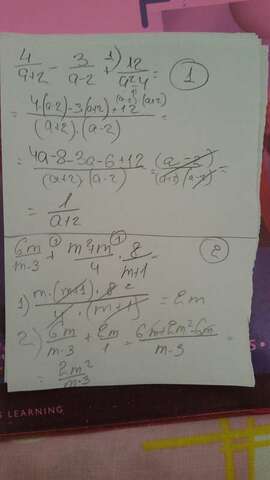 4/(a+2) - 3/(a-2) + 12/(a²-4) = 1
= (4·(a-2)-3·(a+2)+12)/((a+2)·(a-2)) =
(a-2)·(a+2)
= (4a-8-3a-6+12)/((a+2)·(a-2)) = (a-2)/((a+2)·(a-2)) =
= 1/(a+2)
6m/(m-3) + (m²+m)/4 · 8/(m+1) 2
1) (m·(m+1)·8)/(4·(m+1)) = 2m
2) 6m/(m-3) + 2m/1 = (6m+2m²-6m)/(m-3) =
= 2m²/(m-3)
LEARNING